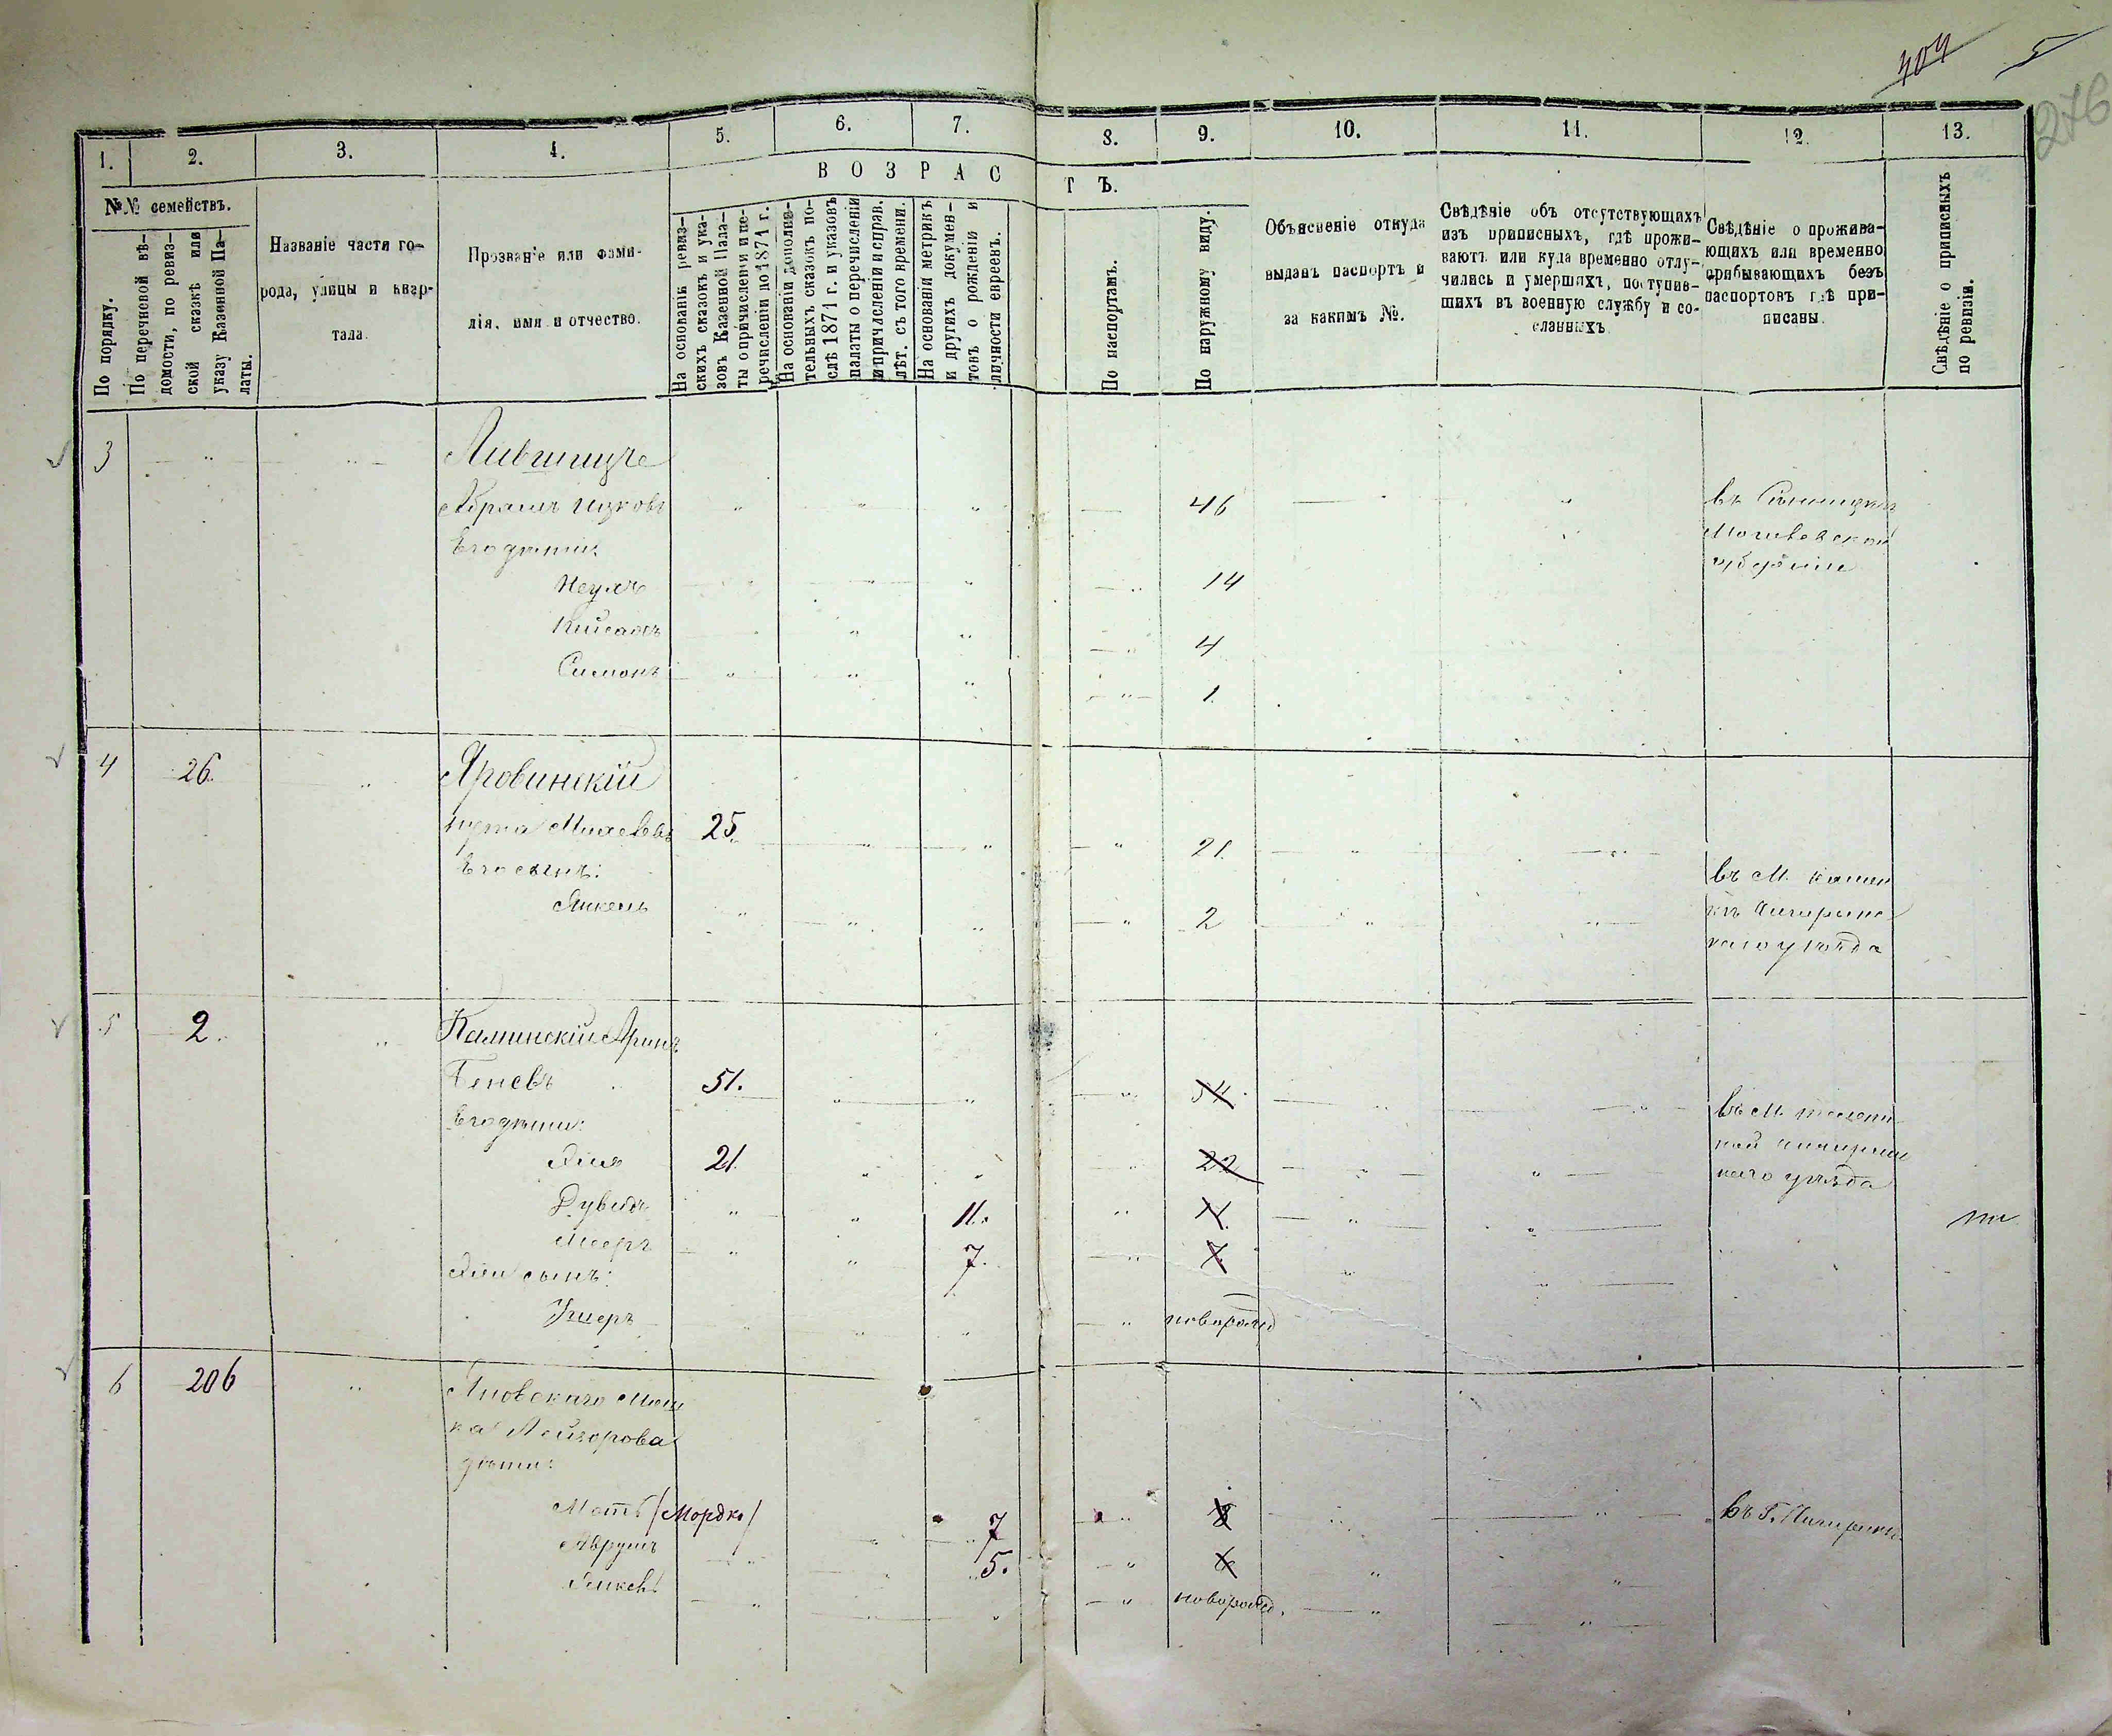 404 5
276
1. 2. 3. 4. 5. 6. 7. 8. 9. 10. 11. 12. 13.
ВОЗРАСТЪ.
№№ семействъ.
По порядку.
По перечневой вѣ-
домости, по ревиз-
ской сказкѣ или
указу Казенной Па-
латы.
Названіе части го-
рода, улицы и квар-
тала.
Прозваніе или фами-
лія, имя и отчество.
На основаніи ревиз-
скихъ сказокъ и ука-
зовъ Казенной Пала-
ты о причисленіи и пе-
речисленіи по 1871 г.
На основаніи дополни-
тельныхъ сказокъ по-
слѣ 1871 г. и указовъ
палаты о перечисленіи
и причисленіи и справ.
лѣт. съ того времени.
На основаніи метрикъ
и другихъ докумен-
товъ о рожденіи и
личности евреевъ.
По паспортамъ.
По наружному виду.
Объясненіе откуда
выданъ паспортъ и
за какимъ №.
Свѣдѣніе объ отсутствующихъ
изъ приписныхъ, гдѣ прожи-
ваютъ или куда временно отлу-
чились и умершихъ, поступив-
шихъ въ военную службу и со-
сланныхъ.
Свѣдѣніе о прожива-
ющихъ или временно
прибывающихъ безъ
паспортовъ гдѣ при-
писаны.
Свѣдѣніе о приписныхъ
по ревизіи.
3 Лившицъ
Абрамъ Ицковъ 46 въ
Его дѣти: Могилевской
губерніи
14
4
Симонъ 1
4 26. Яровинскій
Михелевъ 25. 21.
Его сынъ: въ М. Камен
2 кѣ Чигиринс
каго уѣзда
5 2. Каминскій
51. 54.
Его дѣти: въ М.
21. 22
каго уѣзда
Дувидъ 11. 11.
Мееръ 7. 7.
сынъ:
Ушеръ новорожд
6 206 Яновскаго Мош
ка Лейзорова
дѣти:
(Мордко) 7 8 въ Г. Чигиринѣ.
Аврумъ 5. 6
новорожд.